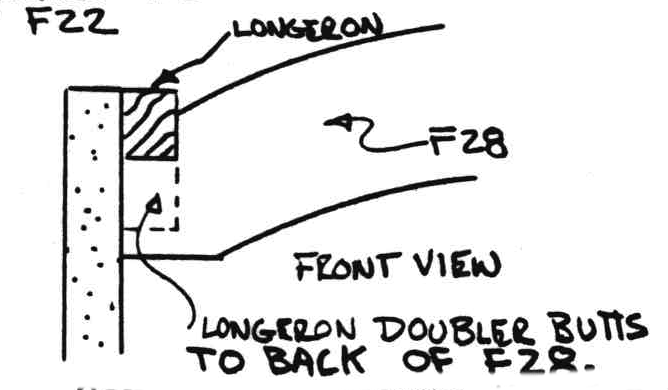 F22
LONGERON
F28
FRONT VIEW
LONGERON DOUBLER BUTTS
TO BACK OF F28.